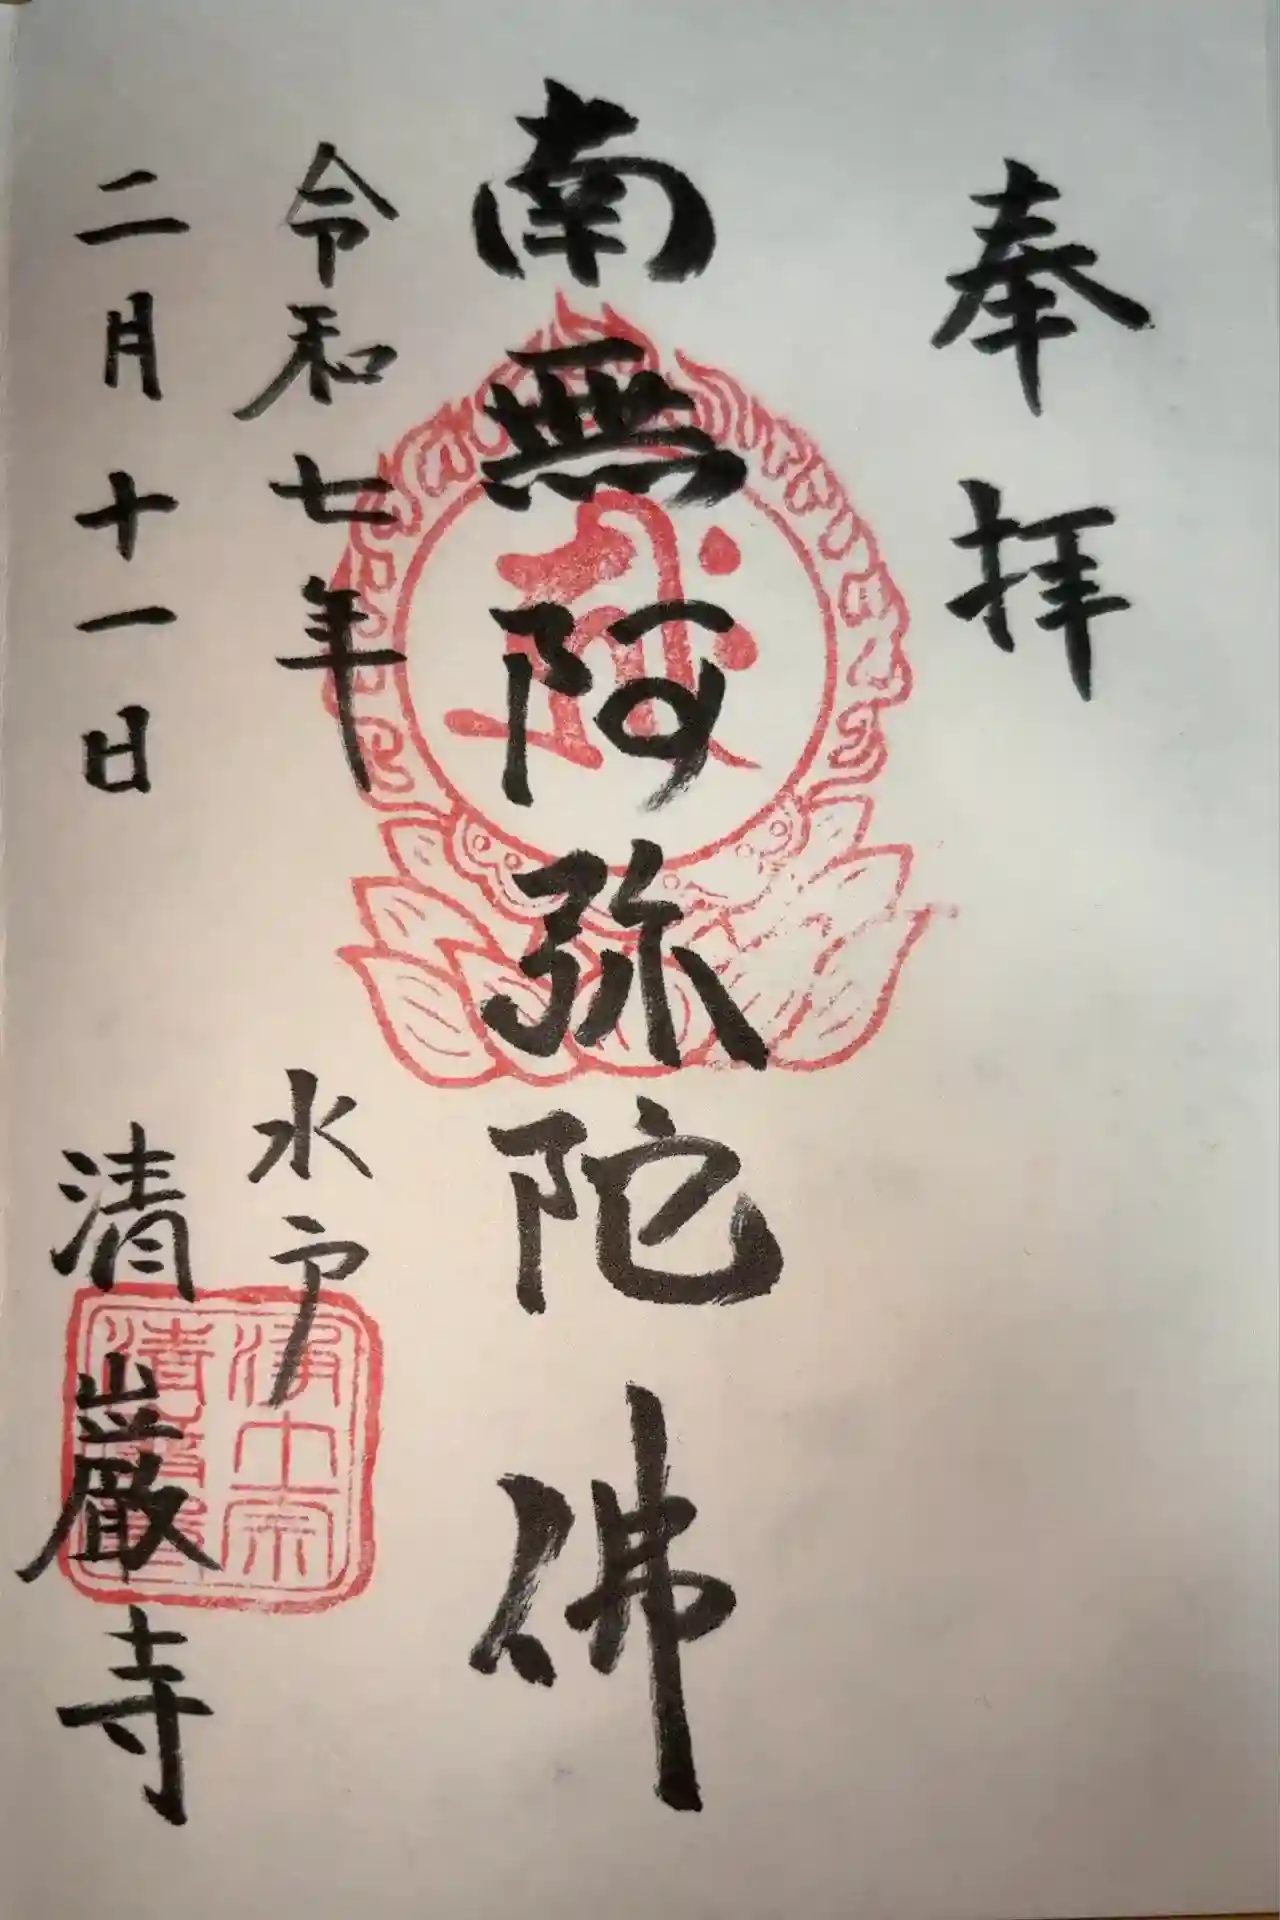 奉拝
南無阿弥陀佛
令和七年
二月十一日
水戸
清巌寺
浄土宗